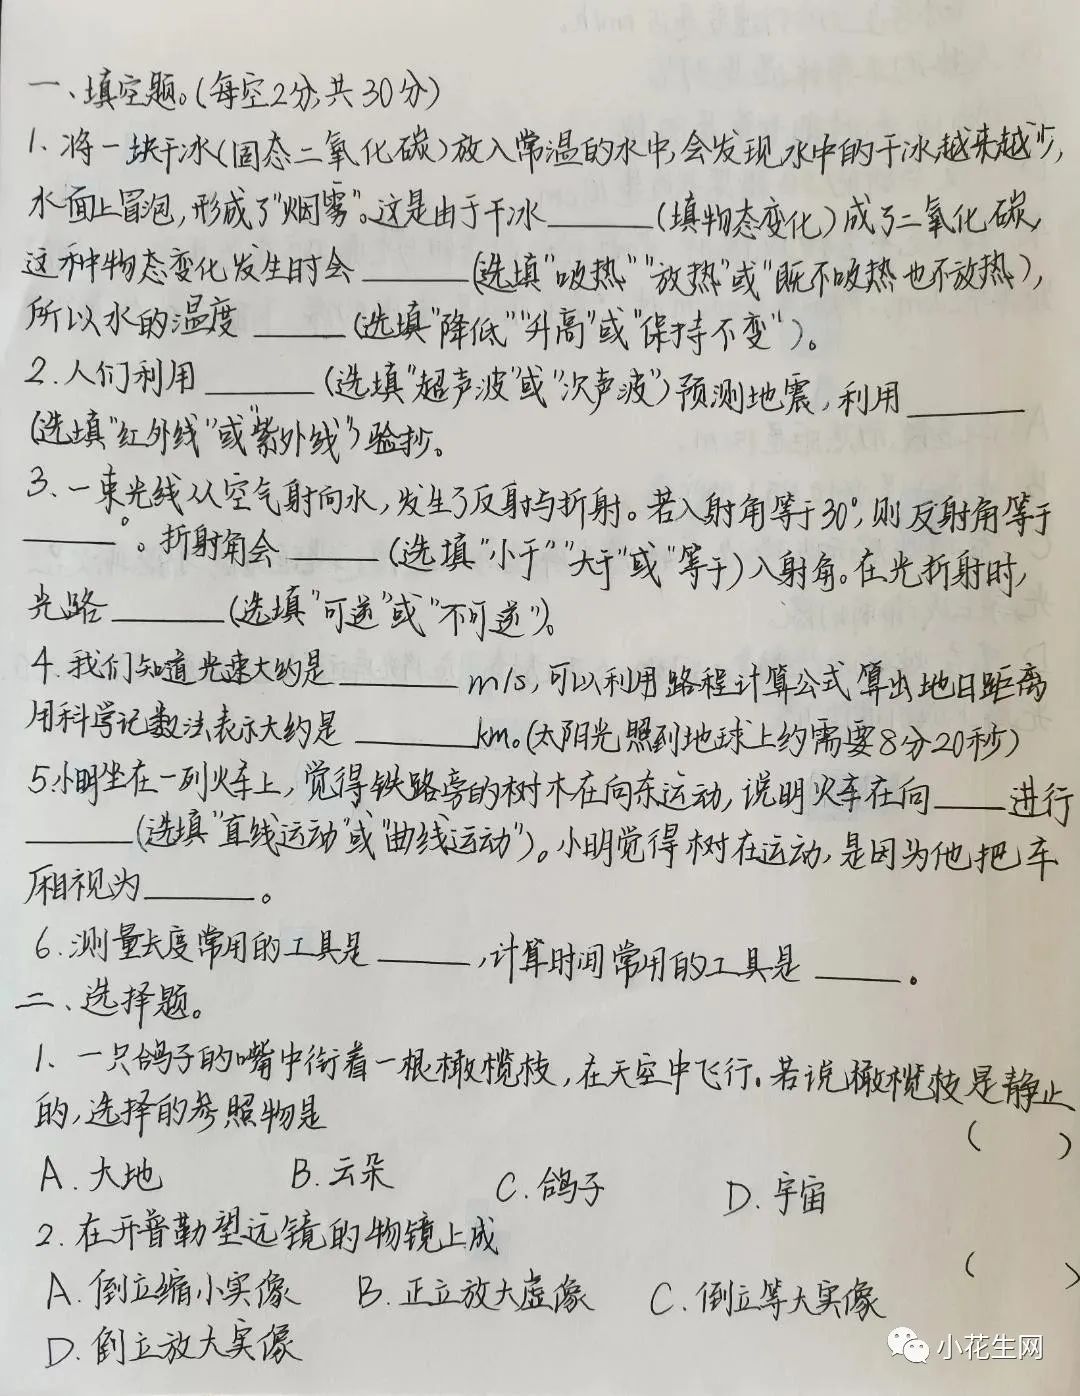 一、填空题。(每空2分,共30分)
1、将一块干冰(固态二氧化碳)放入常温的水中,会发现水中的干冰越来越少,
水面上冒泡,形成了"烟雾"。这是由于干冰______(填物态变化)成了二氧化碳,
这种物态变化发生时会______(选填"吸热""放热"或"既不吸热也不放热"),
所以水的温度______(选填"降低""升高"或"保持不变")。
2.人们利用______(选填"超声波"或"次声波")预测地震,利用______
(选填"红外线"或"紫外线")验抄。
3、一束光线从空气射向水,发生了反射与折射。若入射角等于30°,则反射角等于
______°。折射角会______(选填"小于""大于"或"等于)入射角。在光折射时,
光路______(选填"可逆"或"不可逆")。
4.我们知道光速大约是______m/s,可以利用路程计算公式算出地日距离
用科学记数法表示大约是______km。(太阳光照到地球上约需要8分20秒)
5.小明坐在一列火车上,觉得铁路旁的树木在向东运动,说明火车在向____进行
______(选填"直线运动"或"曲线运动")。小明觉得树在运动,是因为他把车
厢视为______。
6.测量长度常用的工具是_____,计算时间常用的工具是_____。
二、选择题。
1、一只鸽子的嘴中衔着一根橄榄枝,在天空中飞行。若说橄榄枝是静止
的,选择的参照物是 ( )
A.大地 B.云朵 C.鸽子 D.宇宙
2.在开普勒望远镜的物镜上成 ( )
A.倒立缩小实像 B.正立放大虚像 C.倒立等大实像
D.倒立放大实像
小花生网